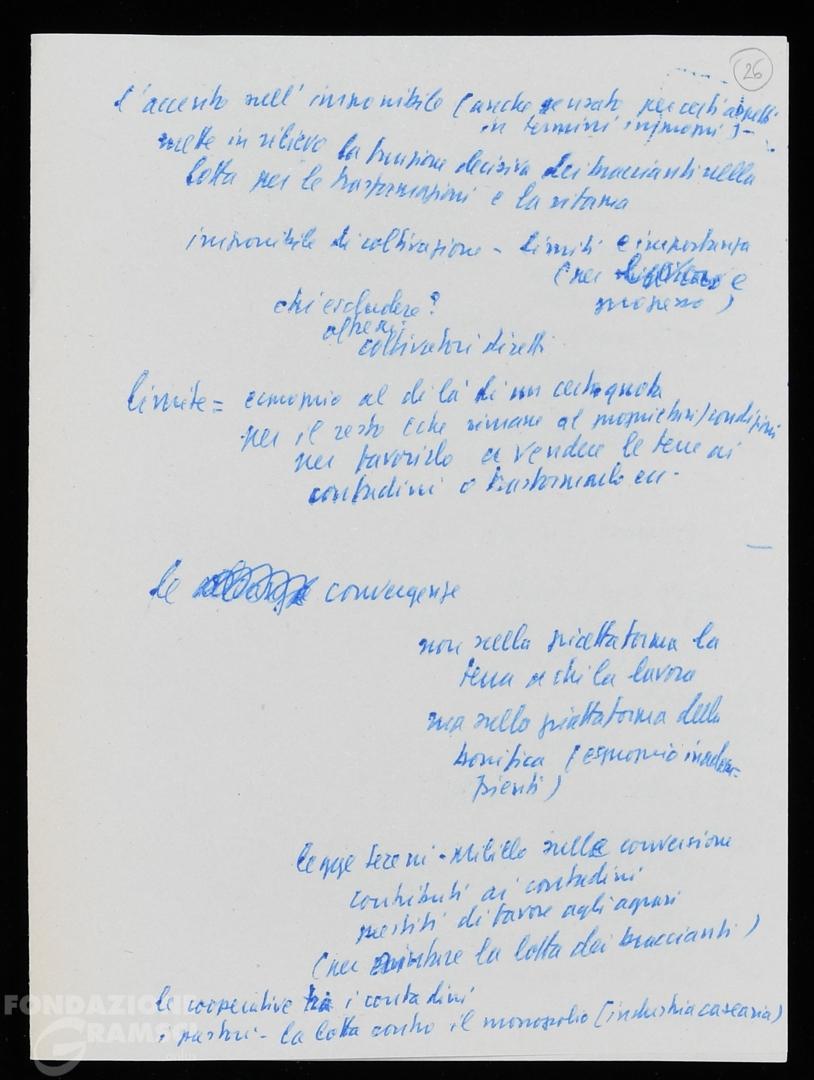 26
l'accento sull'imponibile (anche pensato per certi aspetti
in termini impropri) -
mette in rilievo la funzione decisiva dei braccianti nella
lotta per le trasformazioni e la riforma
imponibile di coltivazione - limiti e importanza
(per e
progresso)
chi escludere?
alpeggi:
coltivatori diretti
limite = esproprio al di là di una certa quota
per il resto (che rimane al proprietario) condizioni
per favorirlo a vendere le terre ai
contadini o trasformarlo ecc.
le convergenze
non sulla piattaforma la
terra a chi la lavora
ma sulla piattaforma della
bonifica (esproprio inadem-
pienti)
legge Sereni - Milillo sulla conversione
contributi ai contadini
prestiti di favore agli agrari
(per aiutare la lotta dei braccianti)
le cooperative tra i contadini
i pastori - la lotta contro il monopolio (industria casearia)
FONDAZIONE
GRAMSCI